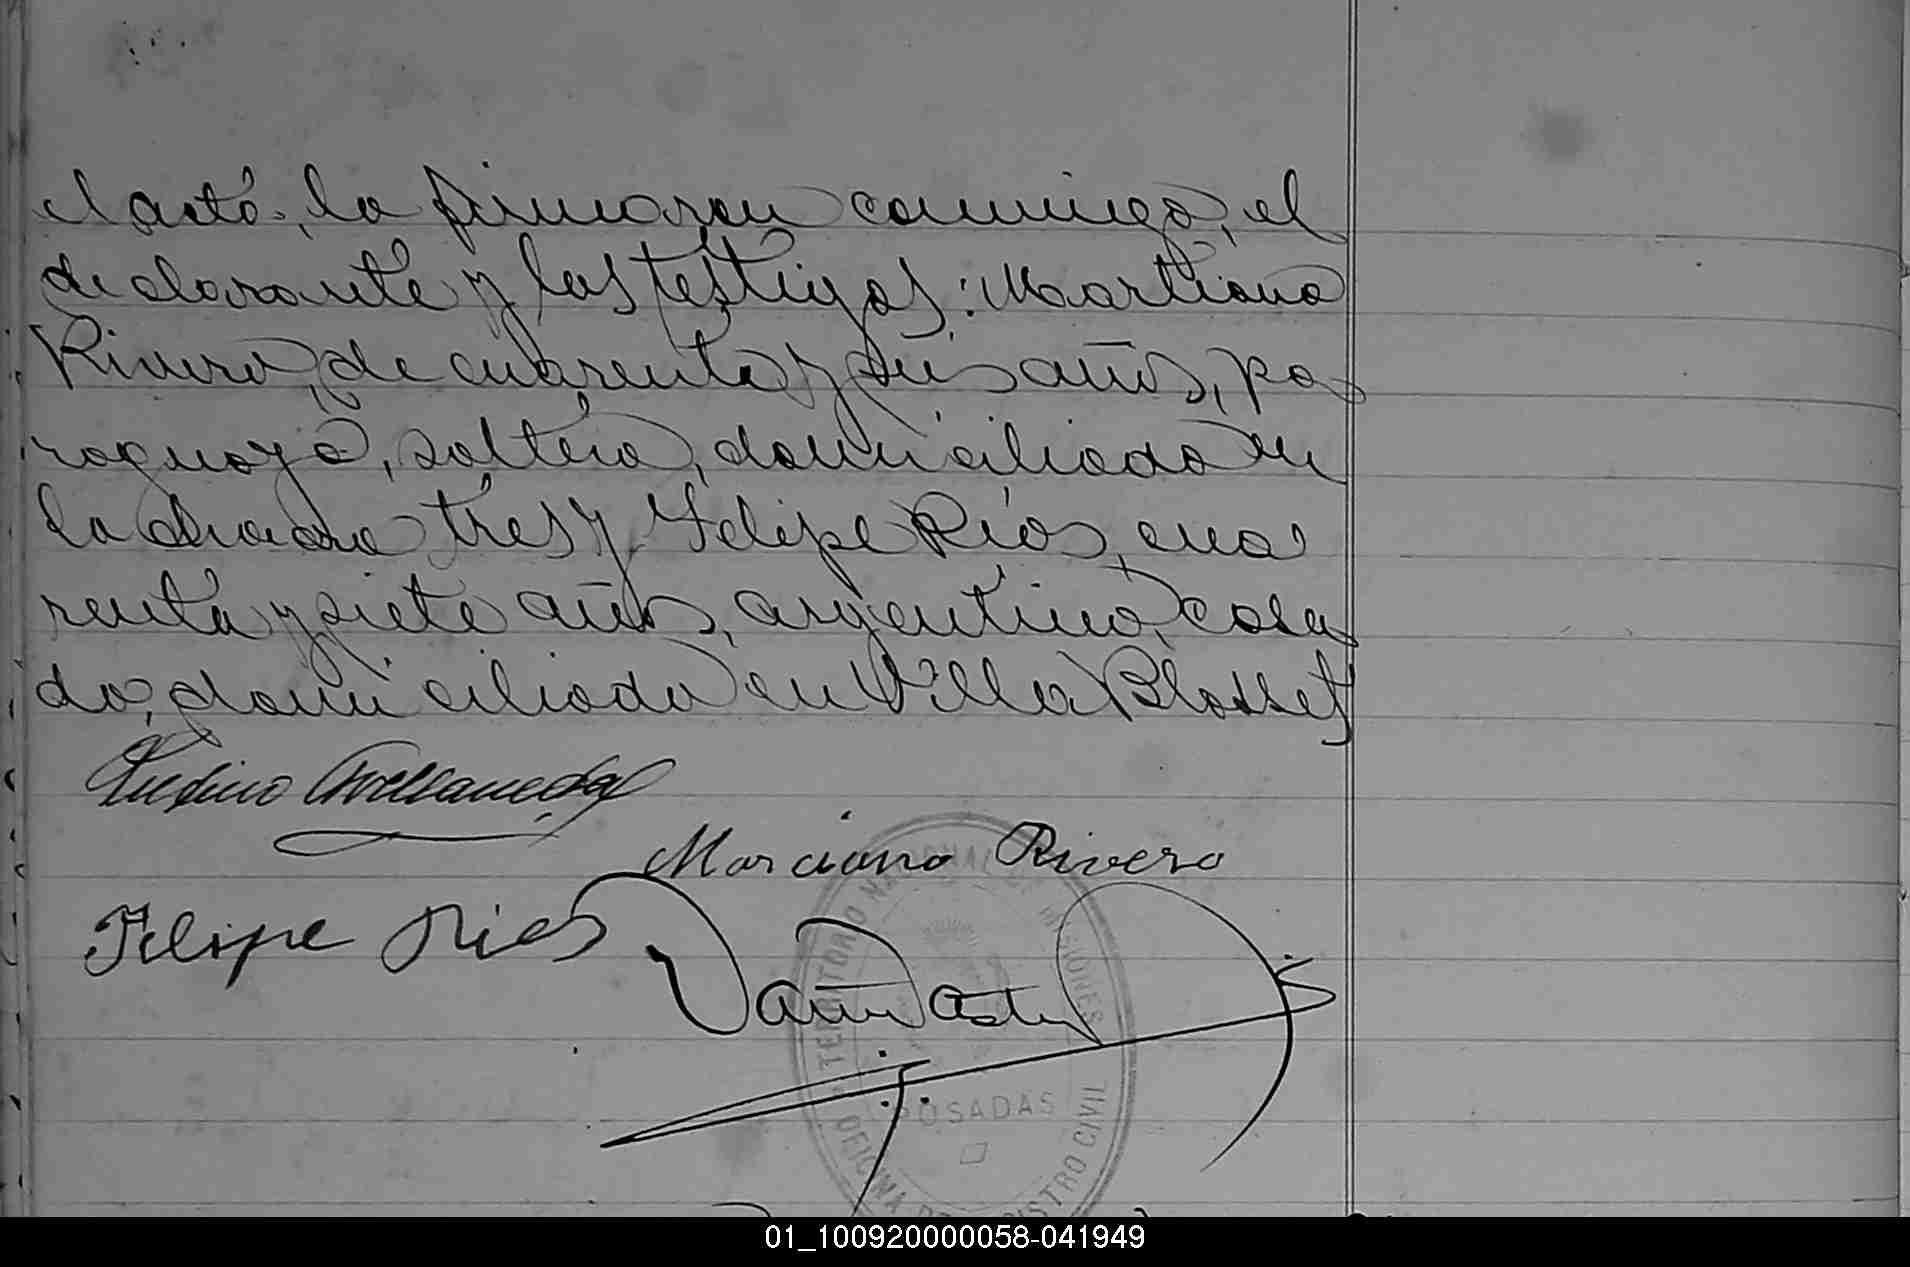 el acto, la firmaron conmigo, el
declarante y los testigos: Martiano
Rivero, de cuarenta y seis años, pa
raguayo, soltero, domiciliado en
la chacra tres y Felipe Ríos, cua
renta y siete años, argentino, casa
do, domiciliado en Villa Blosset
Avellaneda
Marciano Rivero
Felipe Rios
TERRITORIO NACIONAL DE MISIONES
POSADAS
OFICINA REGISTRO CIVIL
01_100920000058-041949